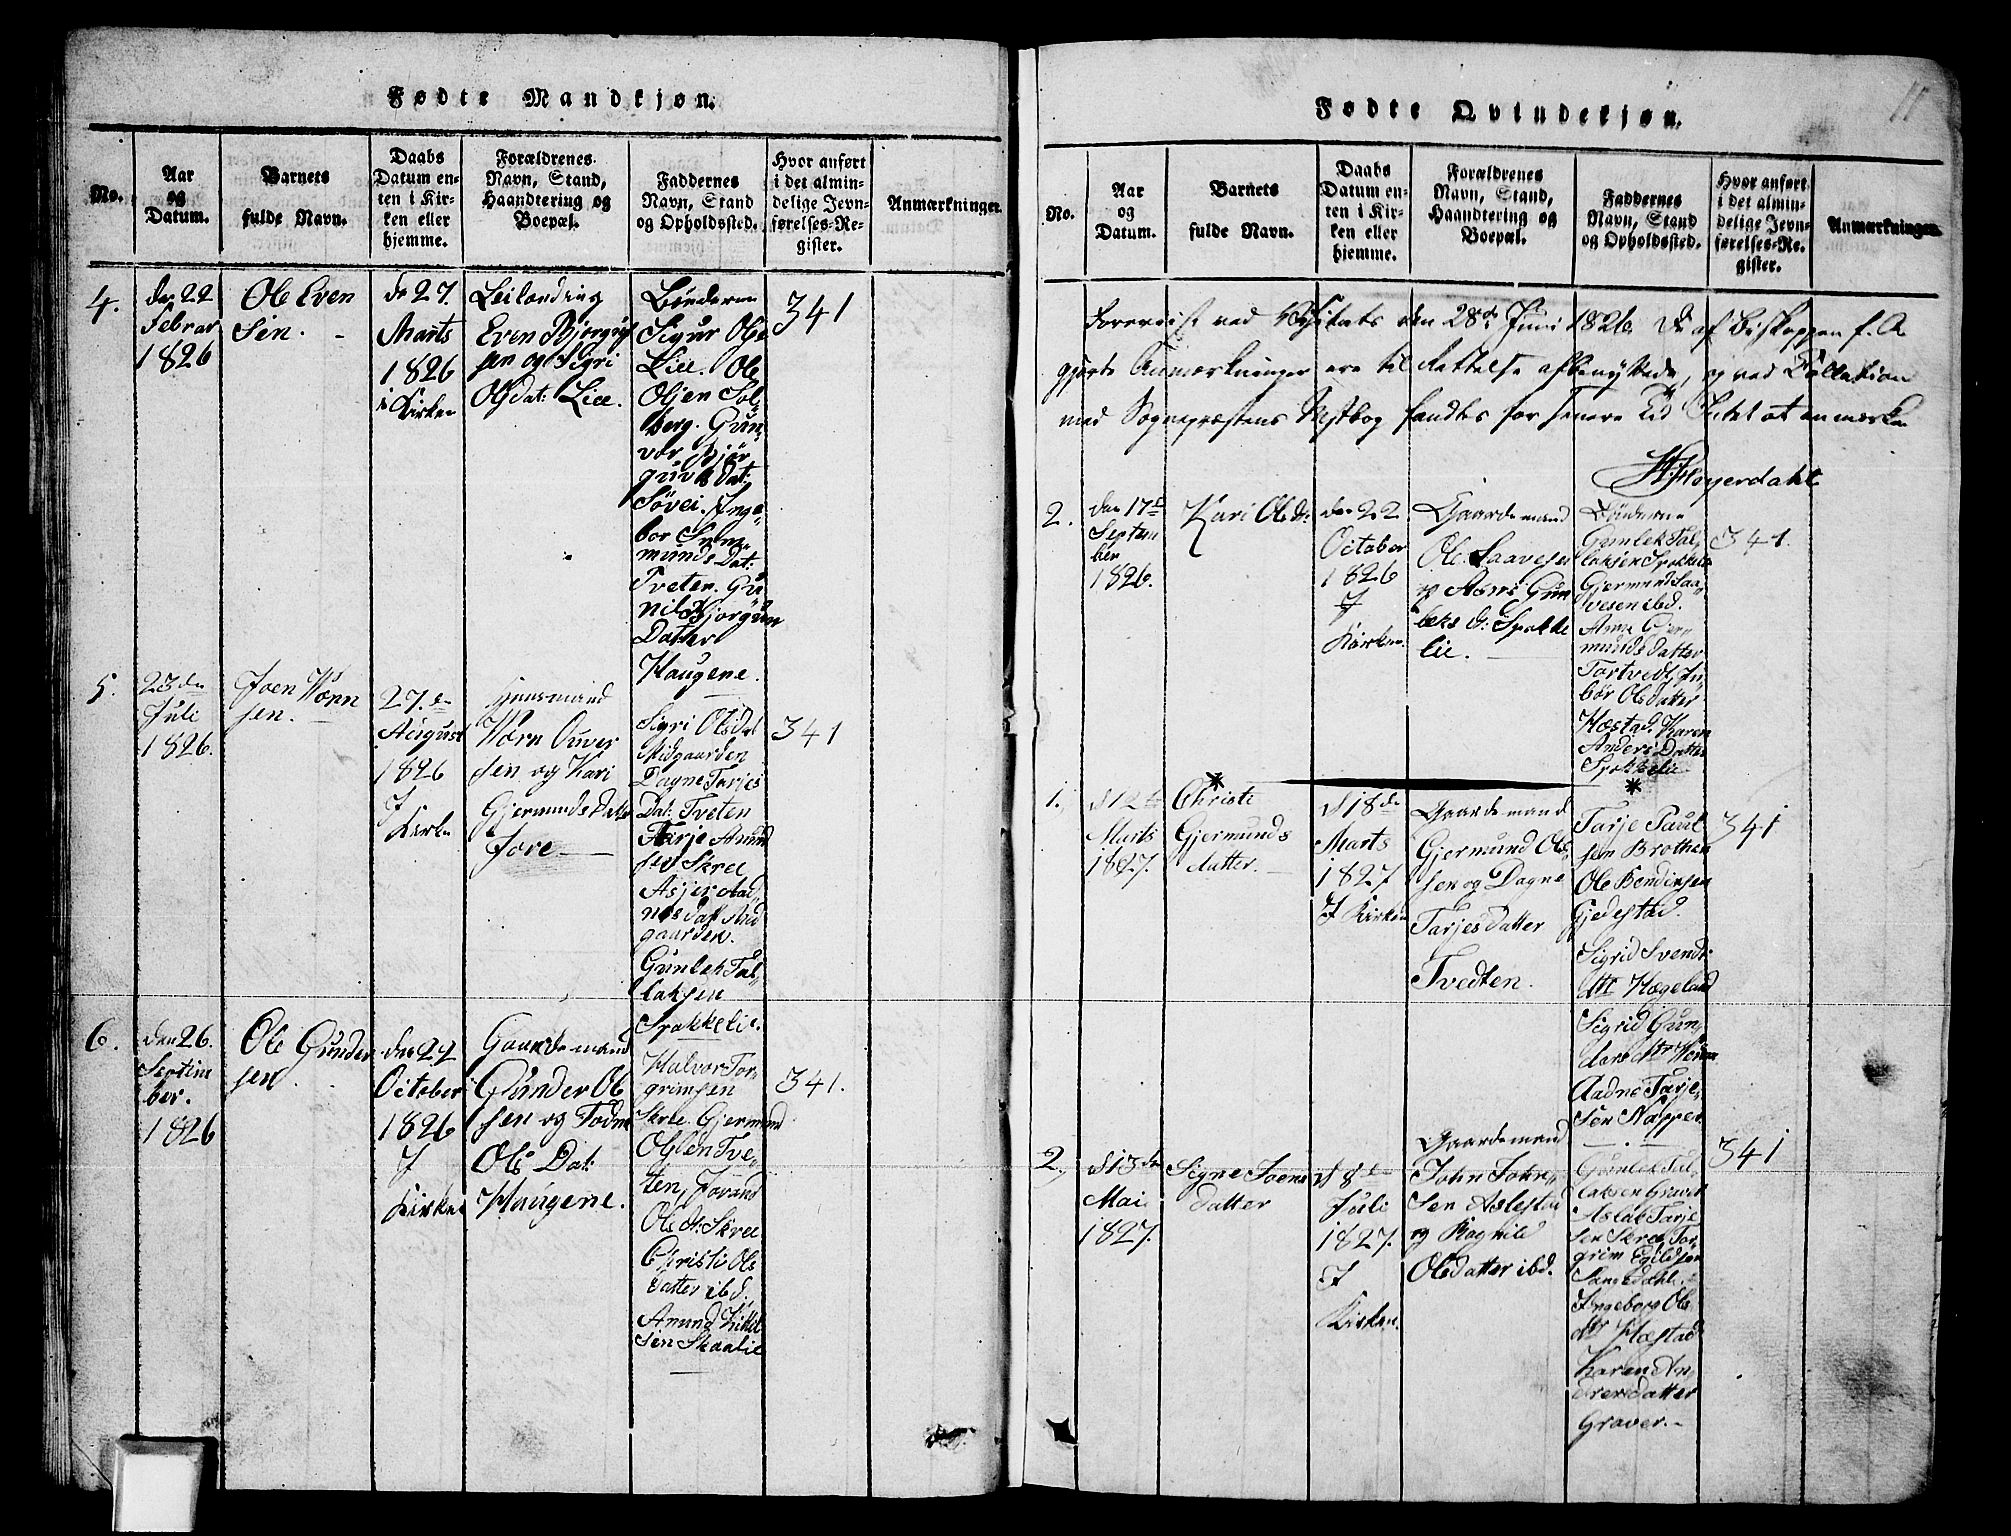 Fødte Mandkjøn.
No.
Aar
og
Datum.
Barnets
fulde Navn.
Daabs
Datum en-
ten i Kir-
ken eller
hjemme.
Forældrenes
Navn, Stand,
Haandtering og
Boepæl.
Faddernes
Navn, Stand
og Opholdssted.
Hvor anført
i det almin-
delige Jevn-
førelses-Re-
gister.
Anmærkninger.
4.
den 22
Februar
1826
Ole Even
sen.
de 27.
Marts
1826
i Kirken
Leilending
Even Bjorguf
sen og Sigri
Olsdat: Liee.
Bønderne
Sigur Olse
Liee. Ole
Olsen Sol
berg. Gun,
vor Bjør
guvs Dat:
Søvei. Inge
bor
munds Dat:
Tveten. Gu
nild Bjorguv
Datter
Haugene.
341
5.
23de
Juli
1826.
Joen Wørn
sen.
27de
August
1826
I
Kirke
Huusmand
Wørn Ouver
sen og Kari
Gjermunds Datter
Fore
Sigri Olsdat
Midgaarden
Dagne Tarjes
Dat: Tveten
Tarje Amund
sen Skree
Asjer Aad
nesdat And
gaarden.
Gunlek Tal,
laksen
Spokkelie.
341
6.
den 26.
Septem
ber.
1826
Ole Gunder
sen
den 22
October
1826
I
Kirken
Gaardemand
Gunder Ol
sen og Todne
Ols Dat:
Haugene.
Halvor Tor
grimsen
Skree. Gjermund
Olsen Tve,
ten, Torand
Ols dr: Skree
Christi Ols
datter ibd.
Amund Kittel
sen Skaalie
341.
Fødte Qvindekjøn.
11
No.
Aar
og
Datum.
Barnets
fulde Navn.
Daabs
Datum en-
ten i Kir-
ken eller
hjemme.
Forældrenes
Navn, Stand,
Haandtering og
Boepæl.
Faddernes
Navn, Stand
og Opholdssted.
Hvor anført
i det almin-
delige Jevn-
førelses-Re-
gister.
Anmærkninger.
Foreviist ved Visitats den 28de Juni 1826. De af Biskoppen f. A.
gjorte Anmærkninger ere til Rettelse afbenyttede, og ved Collation
med Sognepræstens Ministbog fandtes for senere Tid Intet at anmærke
Høyerdahl
2.
den 17de
Septem
ber
1826.
Kari Olsdr:
den 22
October
1826
I
Kirken.
Gaardemand
Ole Saavesen
og Asni Gun
leks dr: Spokke
lie.
Bønderne
Gunlek Tal,
laksen Spokkelie
Gjermund Saa,
vesen ibd.
Anne Gjer,
munds datter
Tortvedt, In,
bør Olsdatter
Hæstad. Karen
Anders Datter
Spokkelie
341.
1.
d 12te
Marts
1827.
Christi
Gjermunds
datter.
d 18de
Marts
1827
I Kirken
Gaardemand
Gjermund Ols
sen og Dagne
Tarjesdatter
Tvedten.
Tarje Paul
sen Brothen
Ole Bendixsen
Gjedestad.
Sigrid Svends
dtr Hægeland
Sigrid Gun,
ders dtr
Aadne Tarje,
sen Napper
341
2.
d 13de
Mai
1827.
Signe Joens
datter
d 8de
Juli
1827.
I
Kirken.
Gaardemand
John John,
sen Aslestad
og Ragnild
Olsdatter ibd.
Gunlek Tal,
laksen Graver
Aslak Tarje
sen Skree, Tor,
grim Egildsen
Sangedahl.
Ingeborg Ols
dtr Hæstad
Karen An
dreasdatter
Graver.
341